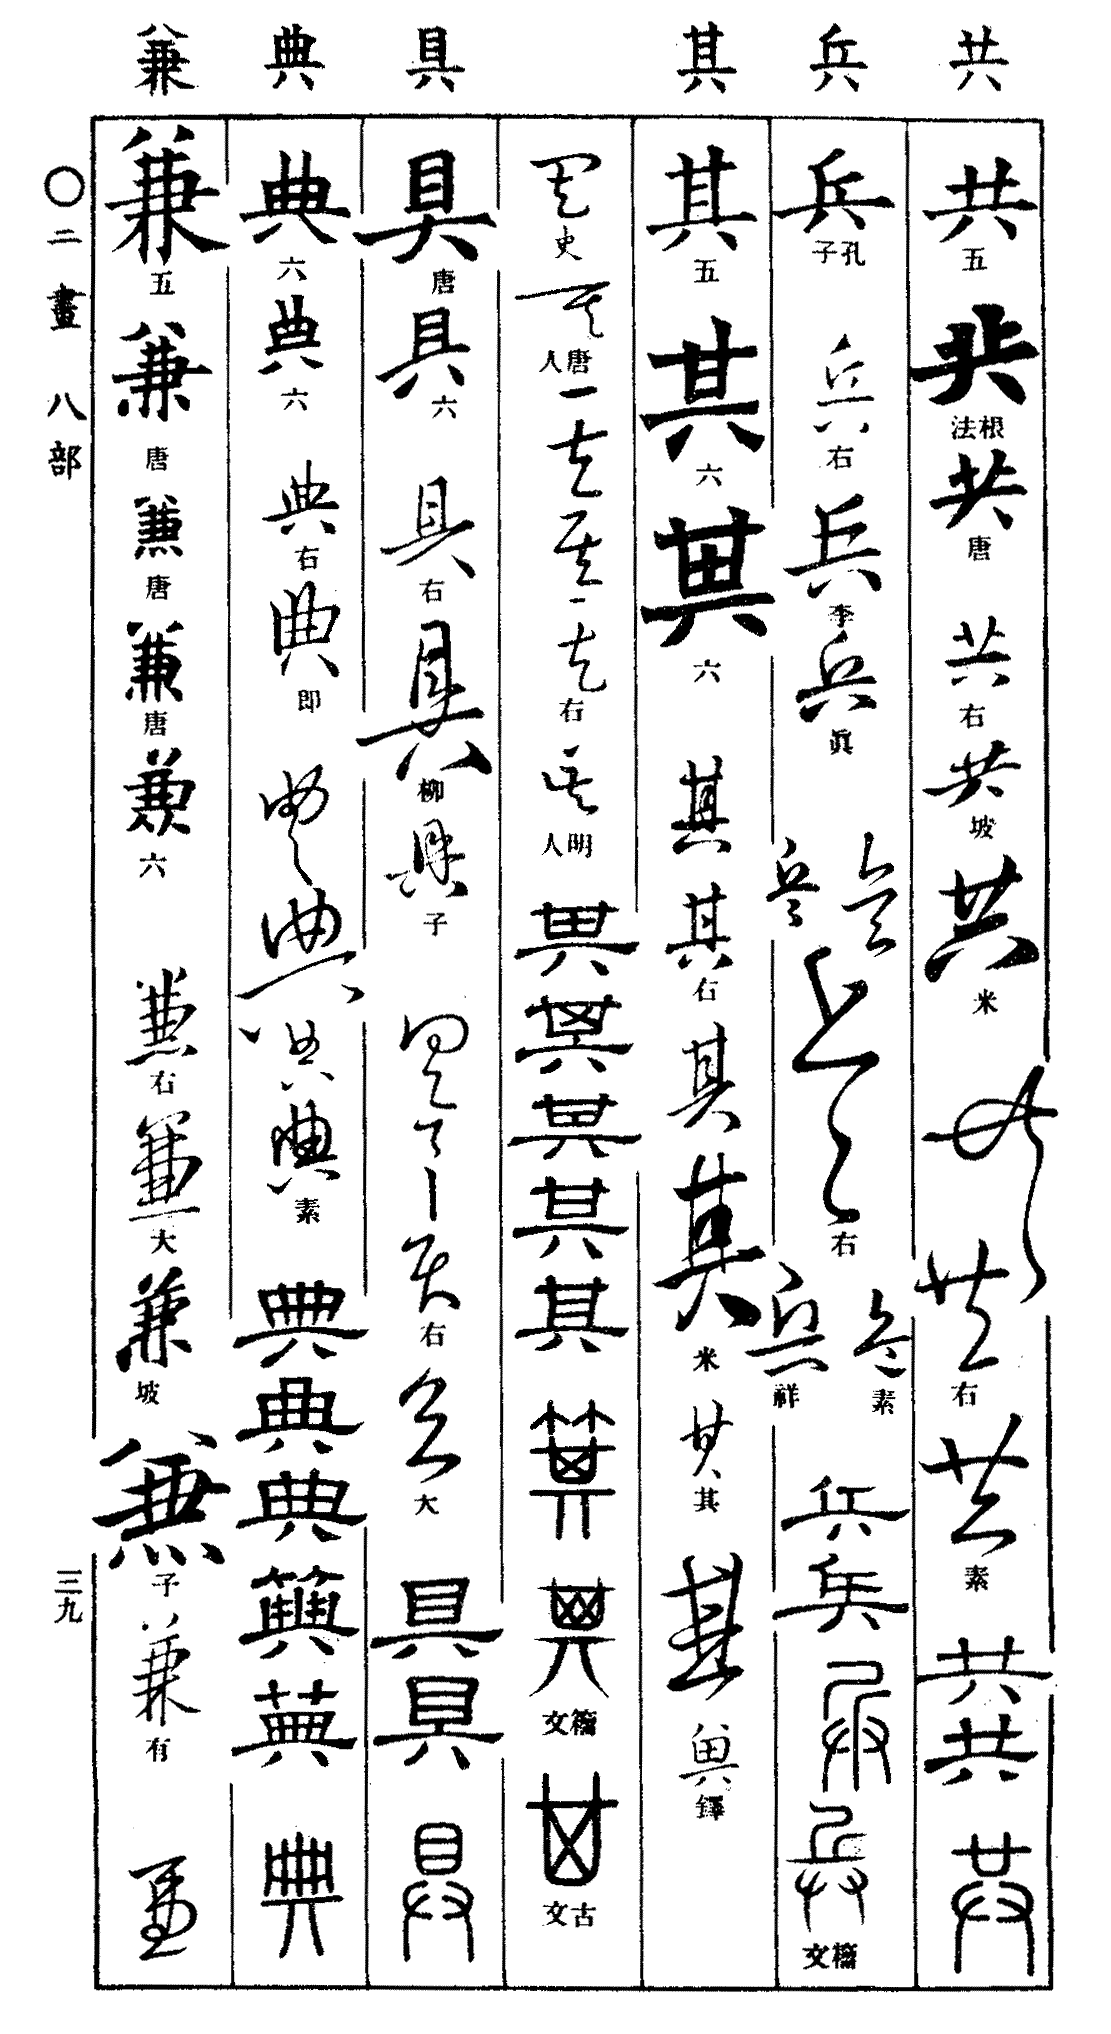 共 兵 其 具 典 兼
共 五
共 根法
共 唐
共 右
共 坡
共 米
共
共 右
共 素
共
共
共
兵 孔子
兵 右
兵 李
兵 眞
兵
兵
兵 右
兵 素
兵 祥
兵
兵
兵
兵 籒文
其 五
其 六
其 六
其
其 右
其
其 米
其 其
其
其 鐸
其 史
其 唐人
其
其
其 右
其 明人
其
其
其
其
其
其
其 籒文
其 古文
具 唐
具 六
具 右
具 柳
具 子
具
具 右
具 大
具
具
具
典 六
典 六
典 右
典 即
典
典
典
典 素
典
典
典
典
典
典
兼 五
兼 唐
兼 唐
兼 唐
兼 六
兼 右
兼 大
兼 坡
兼 子
兼 有
兼
〇二畫 八部
三九